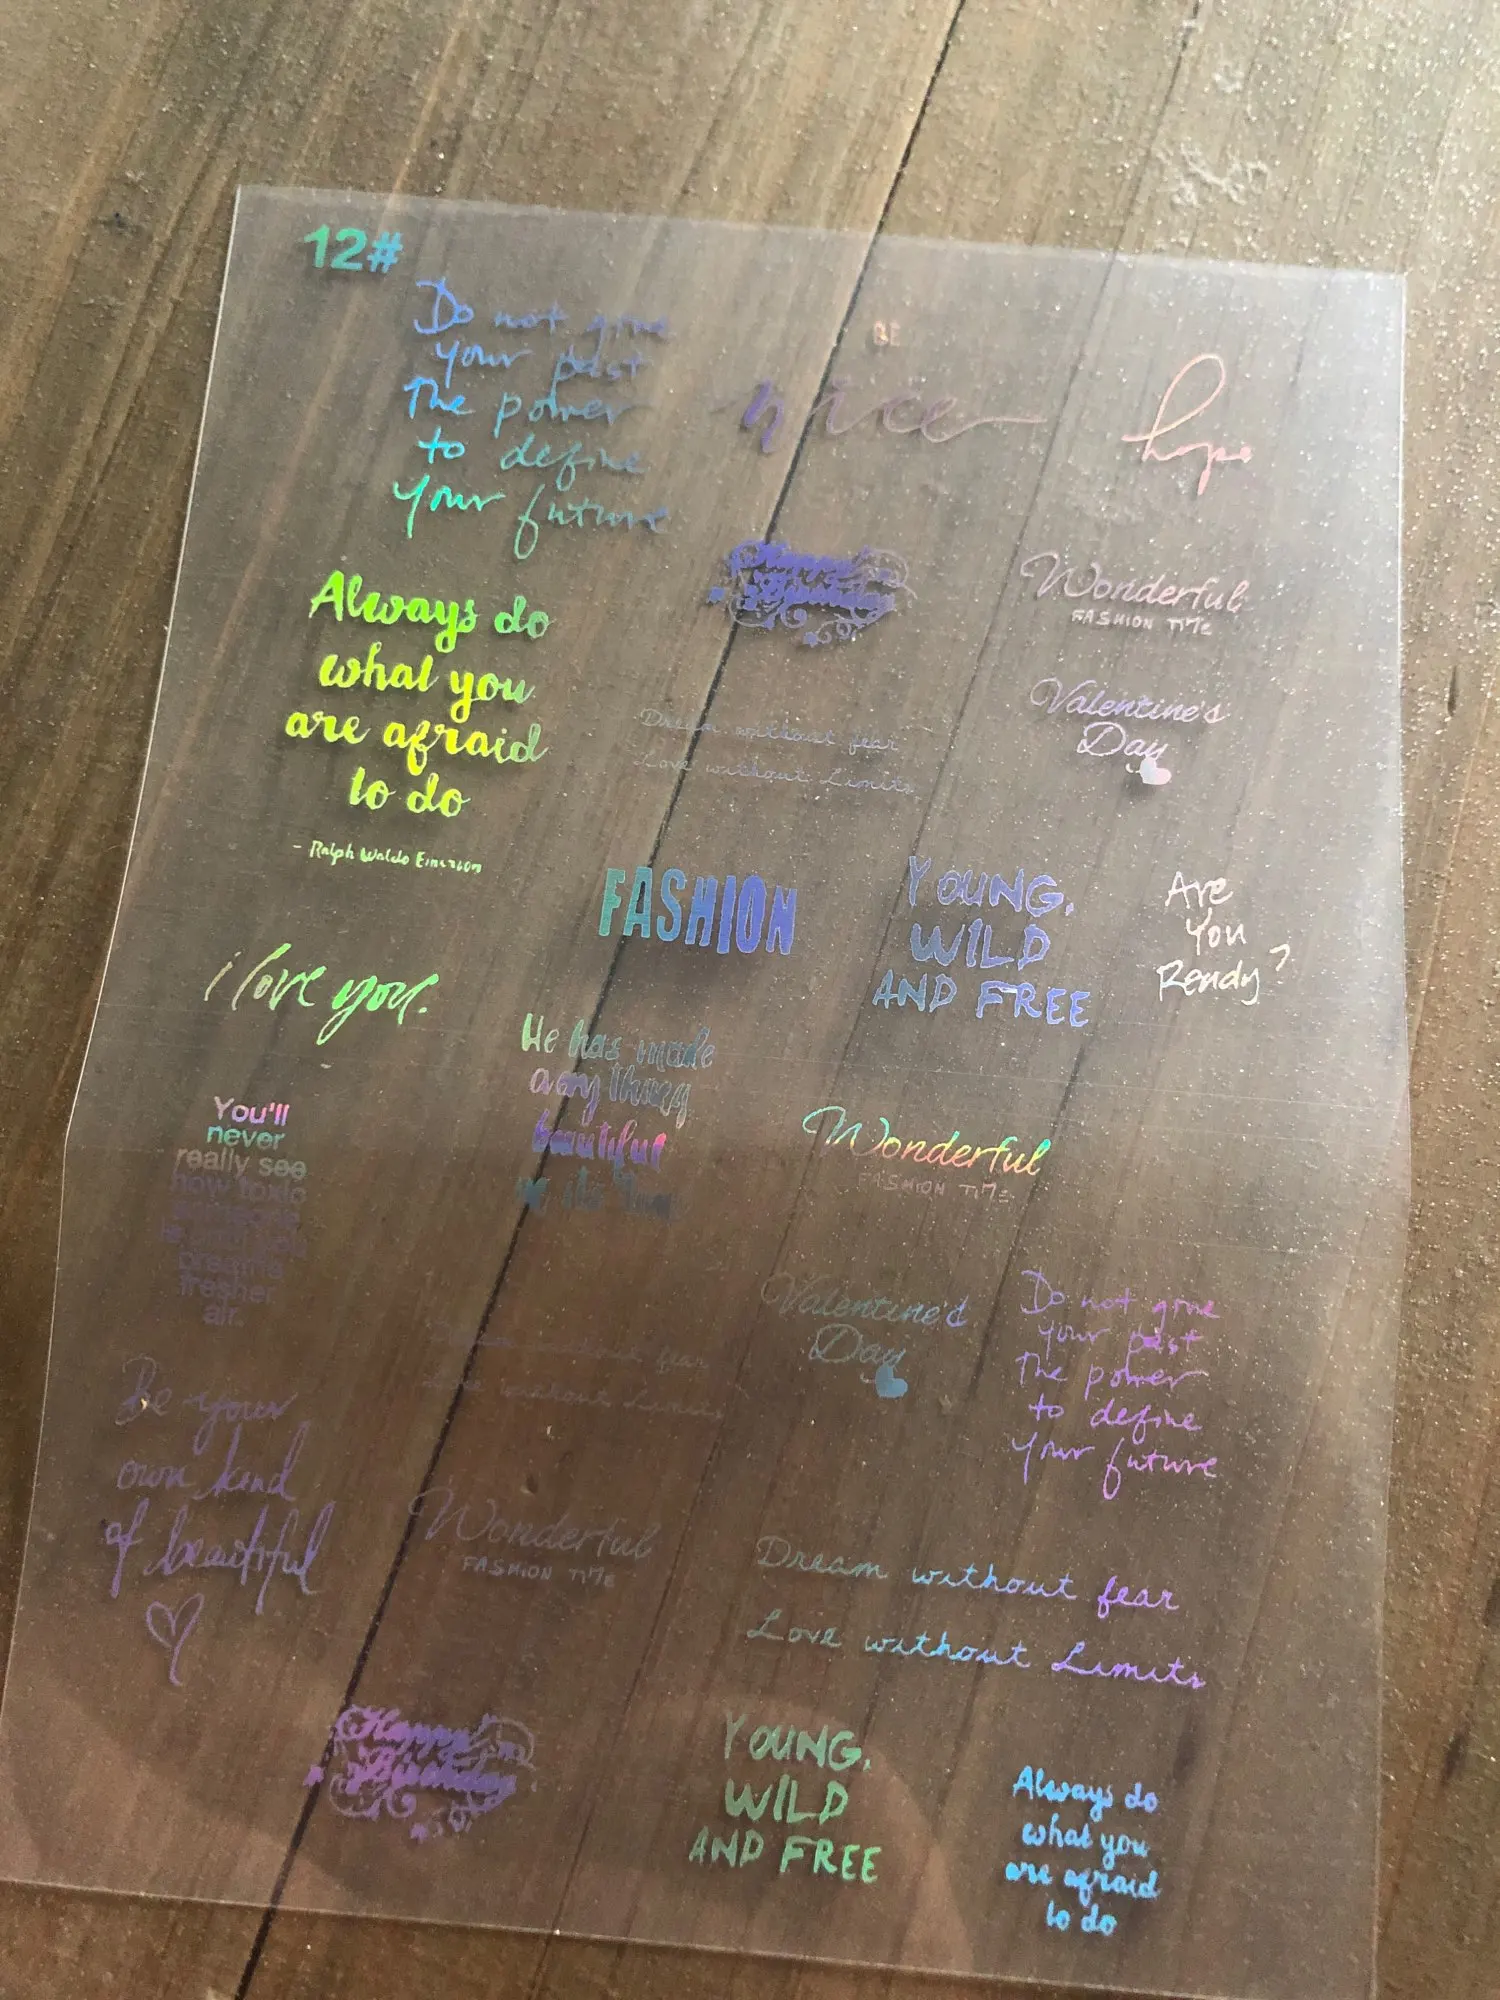 12#
Do not give
your past
The power
to define
your future
BE
nice
hope
Happy
Birthday
Wonderful
FASHION TITLE
Always do
what you
are afraid
to do
- Ralph Waldo Emerson
Dream without fear
Love without Limits
Valentine's
Day
FASHION
YOUNG,
WILD
AND FREE
Are
You
Ready?
i love you.
He has made
everything
beautiful
You'll
never
really see
how toxic
someone
is until you
breathe
fresher
air.
Wonderful
FASHION TITLE
Valentine's
Day
Do not give
your past
The power
to define
your future
without fear
Love without Limits
Be your
own kind
of beautiful
Wonderful
FASHION TITLE
Dream without fear
Love without Limits
Happy
Birthday
YOUNG,
WILD
AND FREE
Always do
what you
are afraid
to do